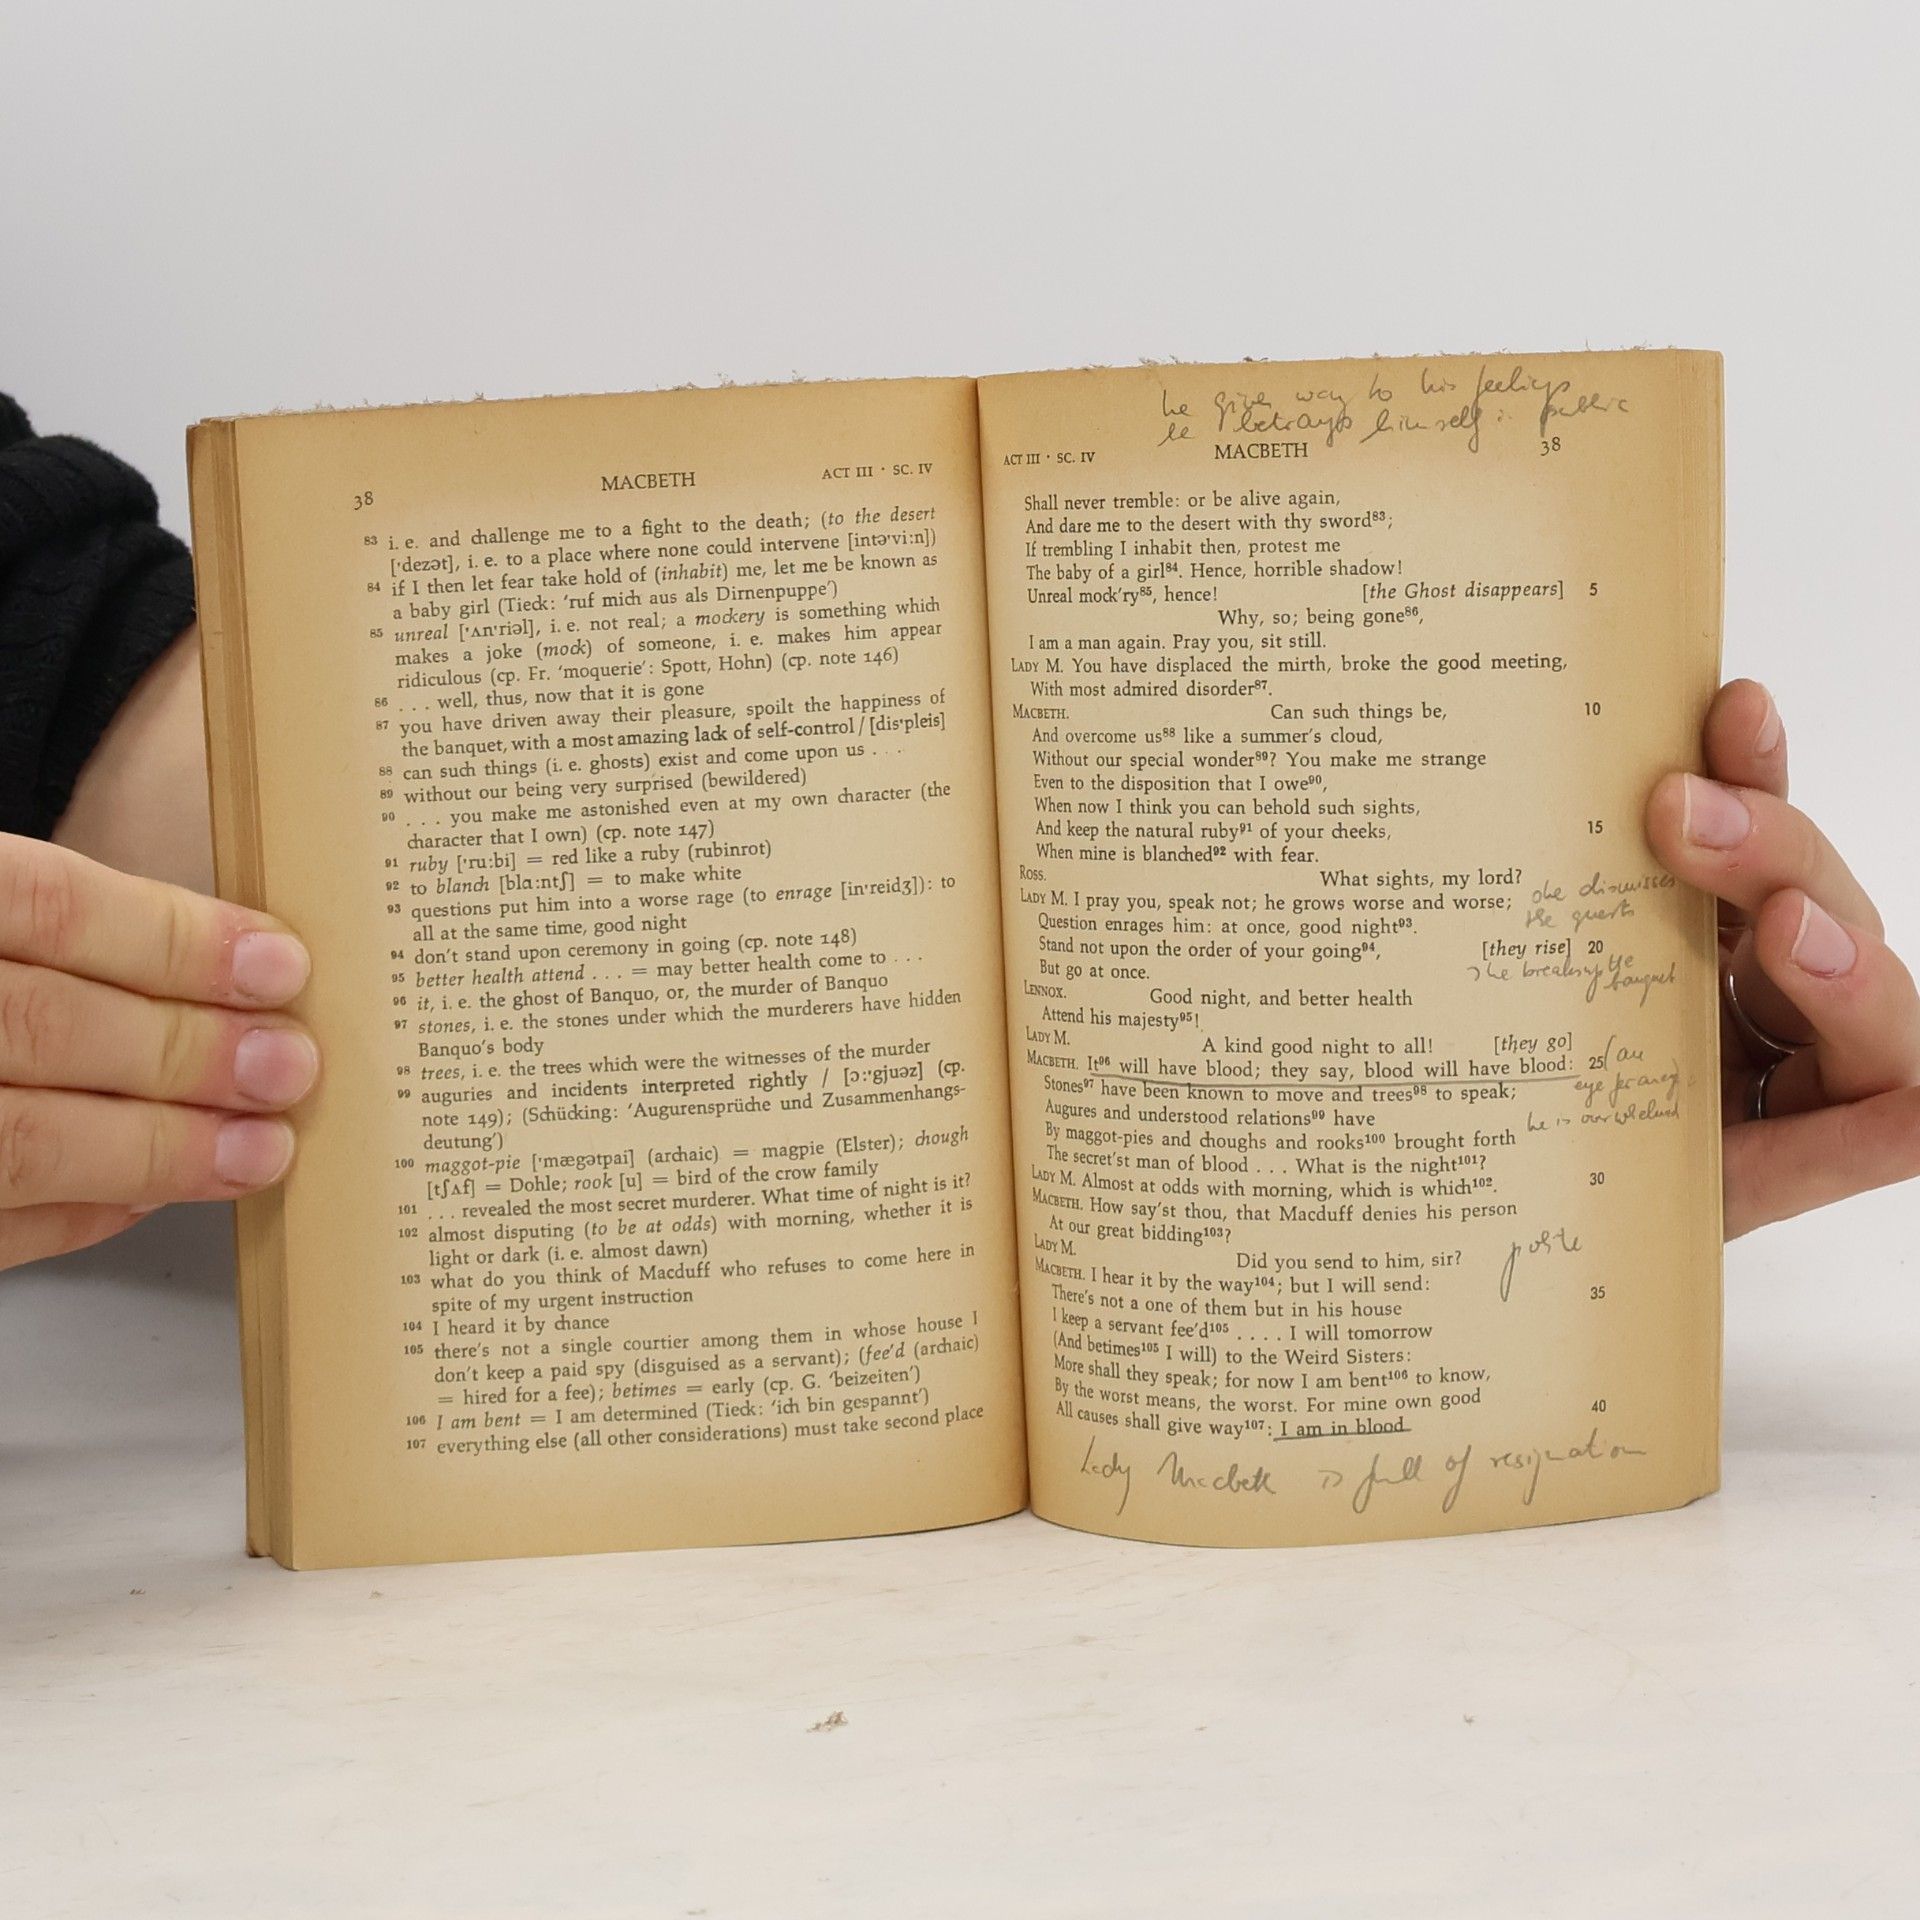 38 MACBETH ACT III · SC. IV
83 i. e. and challenge me to a fight to the death; (to the desert
['dezət], i. e. to a place where none could intervene [intə'vi:n])
84 if I then let fear take hold of (inhabit) me, let me be known as
a baby girl (Tieck: ‘ruf mich aus als Dirnenpuppe’)
85 unreal ['ʌn'riəl], i. e. not real; a mockery is something which
makes a joke (mock) of someone, i. e. makes him appear
ridiculous (cp. Fr. ‘moquerie’: Spott, Hohn) (cp. note 146)
86 . . . well, thus, now that it is gone
87 you have driven away their pleasure, spoilt the happiness of
the banquet, with a most amazing lack of self-control / [dis'pleis]
88 can such things (i. e. ghosts) exist and come upon us . . .
89 without our being very surprised (bewildered)
90 . . . you make me astonished even at my own character (the
character that I own) (cp. note 147)
91 ruby ['ru:bi] = red like a ruby (rubinrot)
92 to blanch [bla:ntʃ] = to make white
93 questions put him into a worse rage (to enrage [in'reidʒ]): to
all at the same time, good night
94 don't stand upon ceremony in going (cp. note 148)
95 better health attend . . . = may better health come to . . .
96 it, i. e. the ghost of Banquo, or, the murder of Banquo
97 stones, i. e. the stones under which the murderers have hidden
Banquo's body
98 trees, i. e. the trees which were the witnesses of the murder
99 auguries and incidents interpreted rightly / [ɔ:'gjuəz] (cp.
note 149); (Schücking: ‘Augurensprüche und Zusammenhangs-
deutung’)
100 maggot-pie ['mægətpai] (archaic) = magpie (Elster); chough
[tʃʌf] = Dohle; rook [u] = bird of the crow family
101 . . . revealed the most secret murderer. What time of night is it?
102 almost disputing (to be at odds) with morning, whether it is
light or dark (i. e. almost dawn)
103 what do you think of Macduff who refuses to come here in
spite of my urgent instruction
104 I heard it by chance
105 there's not a single courtier among them in whose house I
don't keep a paid spy (disguised as a servant); (fee'd (archaic)
= hired for a fee); betimes = early (cp. G. ‘beizeiten’)
106 I am bent = I am determined (Tieck: ‘ich bin gespannt’)
107 everything else (all other considerations) must take second place
he gives way to his feelings
he betrays himself in public
ACT III · SC. IV MACBETH 38
Shall never tremble: or be alive again,
And dare me to the desert with thy sword83;
If trembling I inhabit then, protest me
The baby of a girl84. Hence, horrible shadow!
Unreal mock'ry85, hence! [the Ghost disappears] 5
Why, so; being gone86,
I am a man again. Pray you, sit still.
LADY M. You have displaced the mirth, broke the good meeting,
With most admired disorder87.
MACBETH. Can such things be, 10
And overcome us88 like a summer's cloud,
Without our special wonder89? You make me strange
Even to the disposition that I owe90,
When now I think you can behold such sights,
And keep the natural ruby91 of your cheeks, 15
When mine is blanched92 with fear.
ROSS. What sights, my lord?
she dismisses
LADY M. I pray you, speak not; he grows worse and worse;
the guests
Question enrages him: at once, good night93.
Stand not upon the order of your going94, [they rise] 20
But go at once.
she breaks up the
banquet
LENNOX. Good night, and better health
Attend his majesty95!
LADY M. A kind good night to all! [they go]
MACBETH. It96 will have blood; they say, blood will have blood: 25
(an
eye for an eye
Stones97 have been known to move and trees98 to speak;
Augures and understood relations99 have
he is overwhelmed
By maggot-pies and choughs and rooks100 brought forth
The secret'st man of blood . . . What is the night101?
LADY M. Almost at odds with morning, which is which102. 30
MACBETH. How say'st thou, that Macduff denies his person
At our great bidding103?
LADY M. Did you send to him, sir?
polite
MACBETH. I hear it by the way104; but I will send:
There's not a one of them but in his house 35
I keep a servant fee'd105 . . . . I will tomorrow
(And betimes105 I will) to the Weird Sisters:
More shall they speak; for now I am bent106 to know,
By the worst means, the worst. For mine own good
All causes shall give way107: I am in blood 40
Lady Macbeth is full of resignation